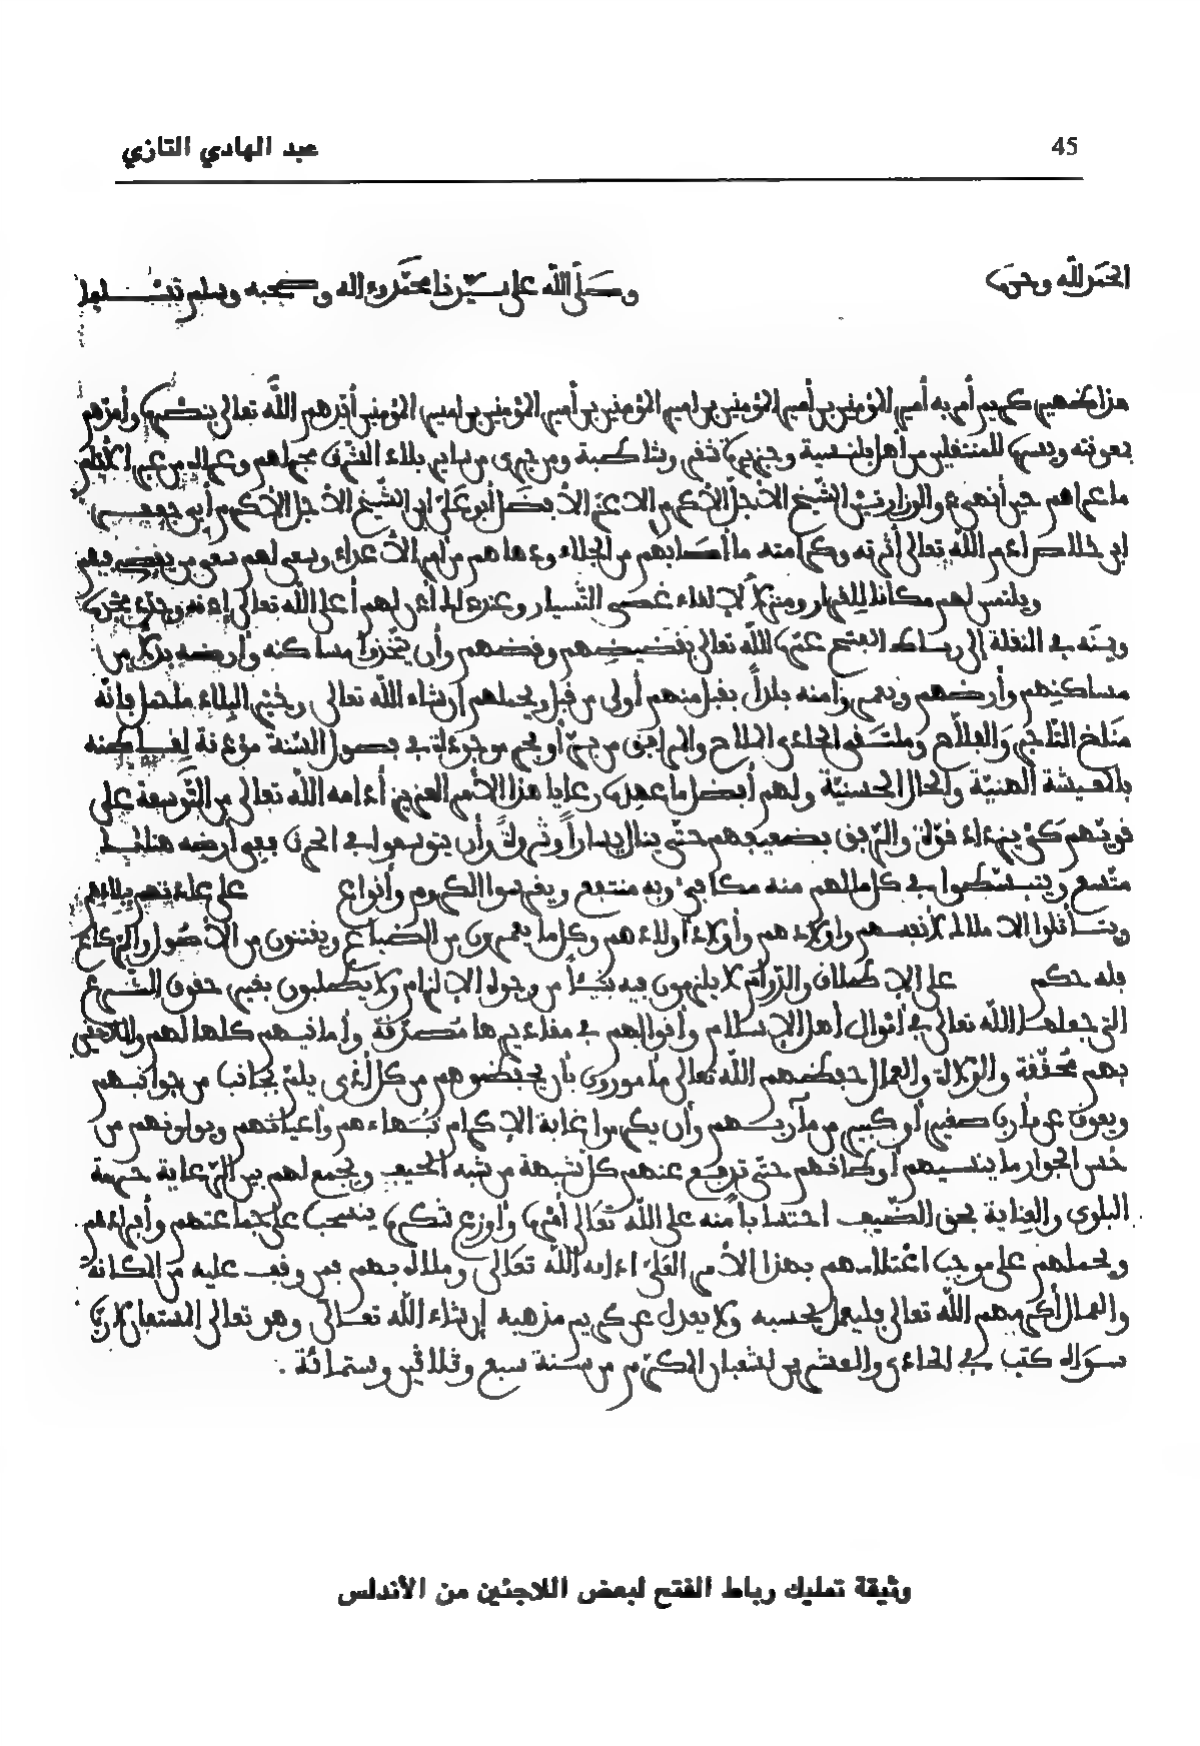 45
عبد الهادي التازي
الحمد لله وحده
وصلى الله على سيدنا محمد وءاله وصحبه وسلم تسليما
هذا ظهير كريم أمر به أمير المؤمنين بن أمير المؤمنين بن أمير المؤمنين بن أمير المؤمنين بن أمير المؤمنين أيدهم الله تعالى بنصره وأمدهم
بمعونته ويسره للمنتقلين من أهل بلنسية وجزيرة شقر وشاطبة ومن جرى من ساير بلاد الشرق مجراهم وعراه من عبر الأيام
ما عراهم حين أنهى ذو الوزارتين الشيخ الأجل الأكرم الأعز الأفضل أبو علي ابن الشيخ الأجل الأكرم أبي جعفر
ابن خلاص أدام الله تعالى أثرته وكرامته ما أصابهم من الجلاء ودهاهم من أمر الأعداء وسعى لهم سعي من يفضي بهم
ويلتمس لهم مكانا للقرار ومنزلا لإلقاء عصى التسيار وعند ذلك أذن لهم أعلى الله تعالى إذنه وجدد
في النقلة إلى رباط الفتح عمره الله تعالى بقضيضهم وقضهم وأن يتخذوا مساكنه وأرضه بدلا من
مساكنهم وأرضهم ويعمروا منه بلدا يقبل منهم أولى من قبل ويحملهم إن شاء الله تعالى وخير البلاد ما حمل فإنه
مناخ التاجر والفلاح وملتقى الحادي والملاح والمرافق من بر أو بحر موجودة في فصول السنة مؤذنة لقاطنه
بالمعيشة الهنية والحال الحسنية ولهم أفضل ما عهده رعايا هذا الأمر العزيز أدامه الله تعالى من التوسعة على
قويهم كي يزداد قوة والرفق بضعيفهم حتى ينال يسارا وثروة وأن يتوسعوا في الحرث ففي أرضه هنالك
متسع ويتبسطوا في كل ما لهم منه مكا في وبه منتفع ويغرسوا الكروم وأنواع على عادتهم ببلادهم
ويتأثلوا الأملاك لأنفسهم وأولادهم وأولاد أولادهم وكل ما يعمرون من الضياع ويقتنون من الأصول والرباع
فله حكم على الإطلاق والدوام لا يلزمون فيه شيئا من وجوه الإلزام ولا يطلبون بغير حقوق الشرع
التي جعلها الله تعالى في أموال أهل الإسلام وأقوالهم في مقاديرها مصدقة وأمانيهم كلها لهم وللاحقين
بهم محققة والولاة والعمال حفظهم الله تعالى مأمورون بأن يحفظوهم من كل أذى يلم بجانب من جوانبهم
ويعوق عن مأرب صغير أو كبير من مآربهم وأن يكرموا غاية الإكرام نبهاءهم وأعيانهم ويولونهم من
حسن الجوار ما ينسيهم أوطانهم حتى ترفع عنهم كل شبهة من شبه الحيف ويجمع لهم بين الرعاية حرمة
البلوى والعناية بحق الضيف احتسابا منه على الله تعالى أمره وأوزع شكره ينسحب على جماعتهم وأفرادهم
ويحملهم على موجب اغتلامهم بهذا الأمر العلي أدامه الله تعالى فمن وقف عليه من الكافة
والعمال أكرمهم الله تعالى فليعمل بحسبه ولا يعدل عن كريم مذهبه إن شاء الله تعالى وهو تعالى المستعان لا رب
سواه كتب في الحادي والعشرين لشعبان المكرم من سنة سبع وثلاثين وستمائة .
وثيقة تمليك رباط الفتح لبعض اللاجئين من الأندلس